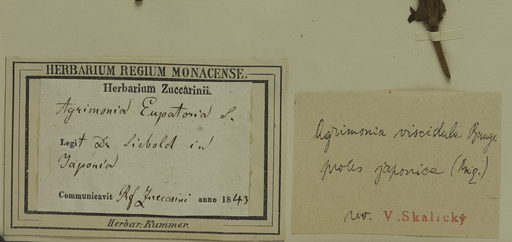 HERBARIUM REGIUM MONACENSE.
Herbarium Zuccarinii.
Agrimonia Eupatoria L.
Legit Dr Siebold in
Japonia
Communicavit Pf Zuccarini anno 1843
Herbar. Kummer.
Agrimonia viscidula Bunge
proles japonica (Miq.)
rev. V. Skalický